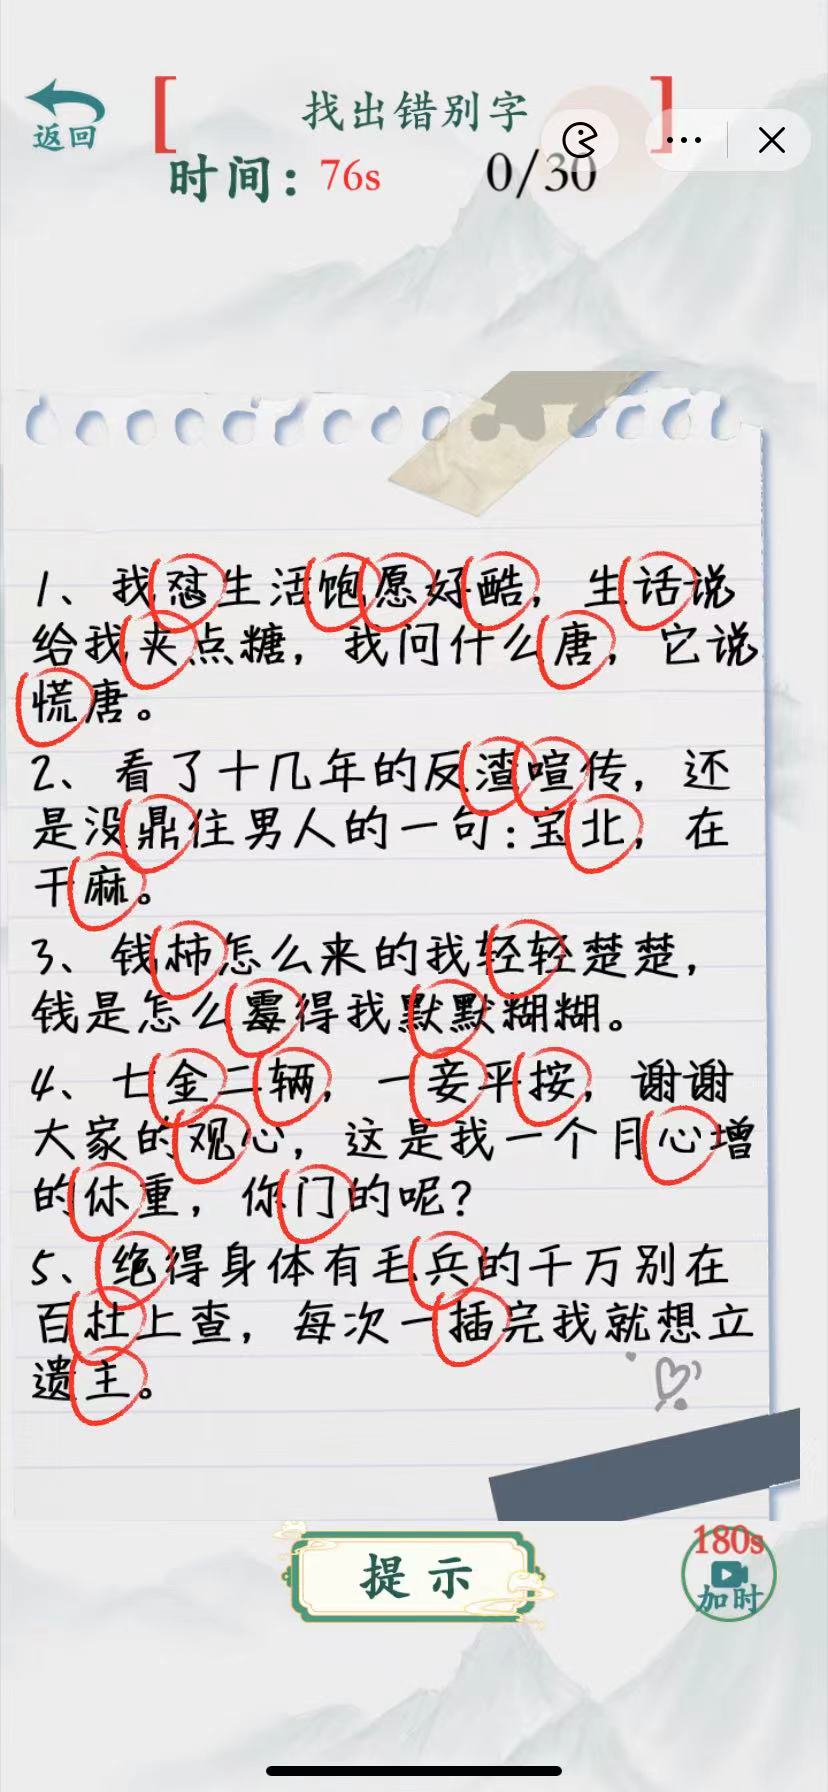 返回
找出错别字
时间：76s
0/30
1、我怼生活饱愿好酷，生话说
给我夹点糖，我问什么唐，它说
慌唐。
2、看了十几年的反渣喧传，还
是没鼎住男人的一句：宝北，在
干麻。
3、钱柿怎么来的我轻轻楚楚，
钱是怎么霉得我默默糊糊。
4、七金二辆，一妾平按，谢谢
大家的观心，这是我一个月心增
的休重，你门的呢？
5、绝得身体有毛兵的千万别在
百杜上查，每次一插完我就想立
遗主。
提示
180s
加时